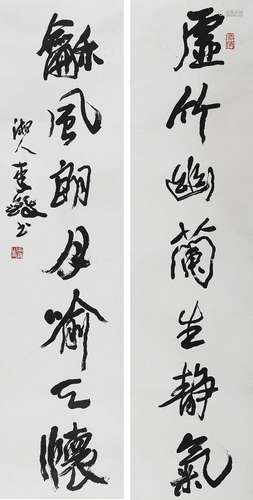 虚竹幽蘭生静氣
龢風朗月喻天懷
湘人李鐸书